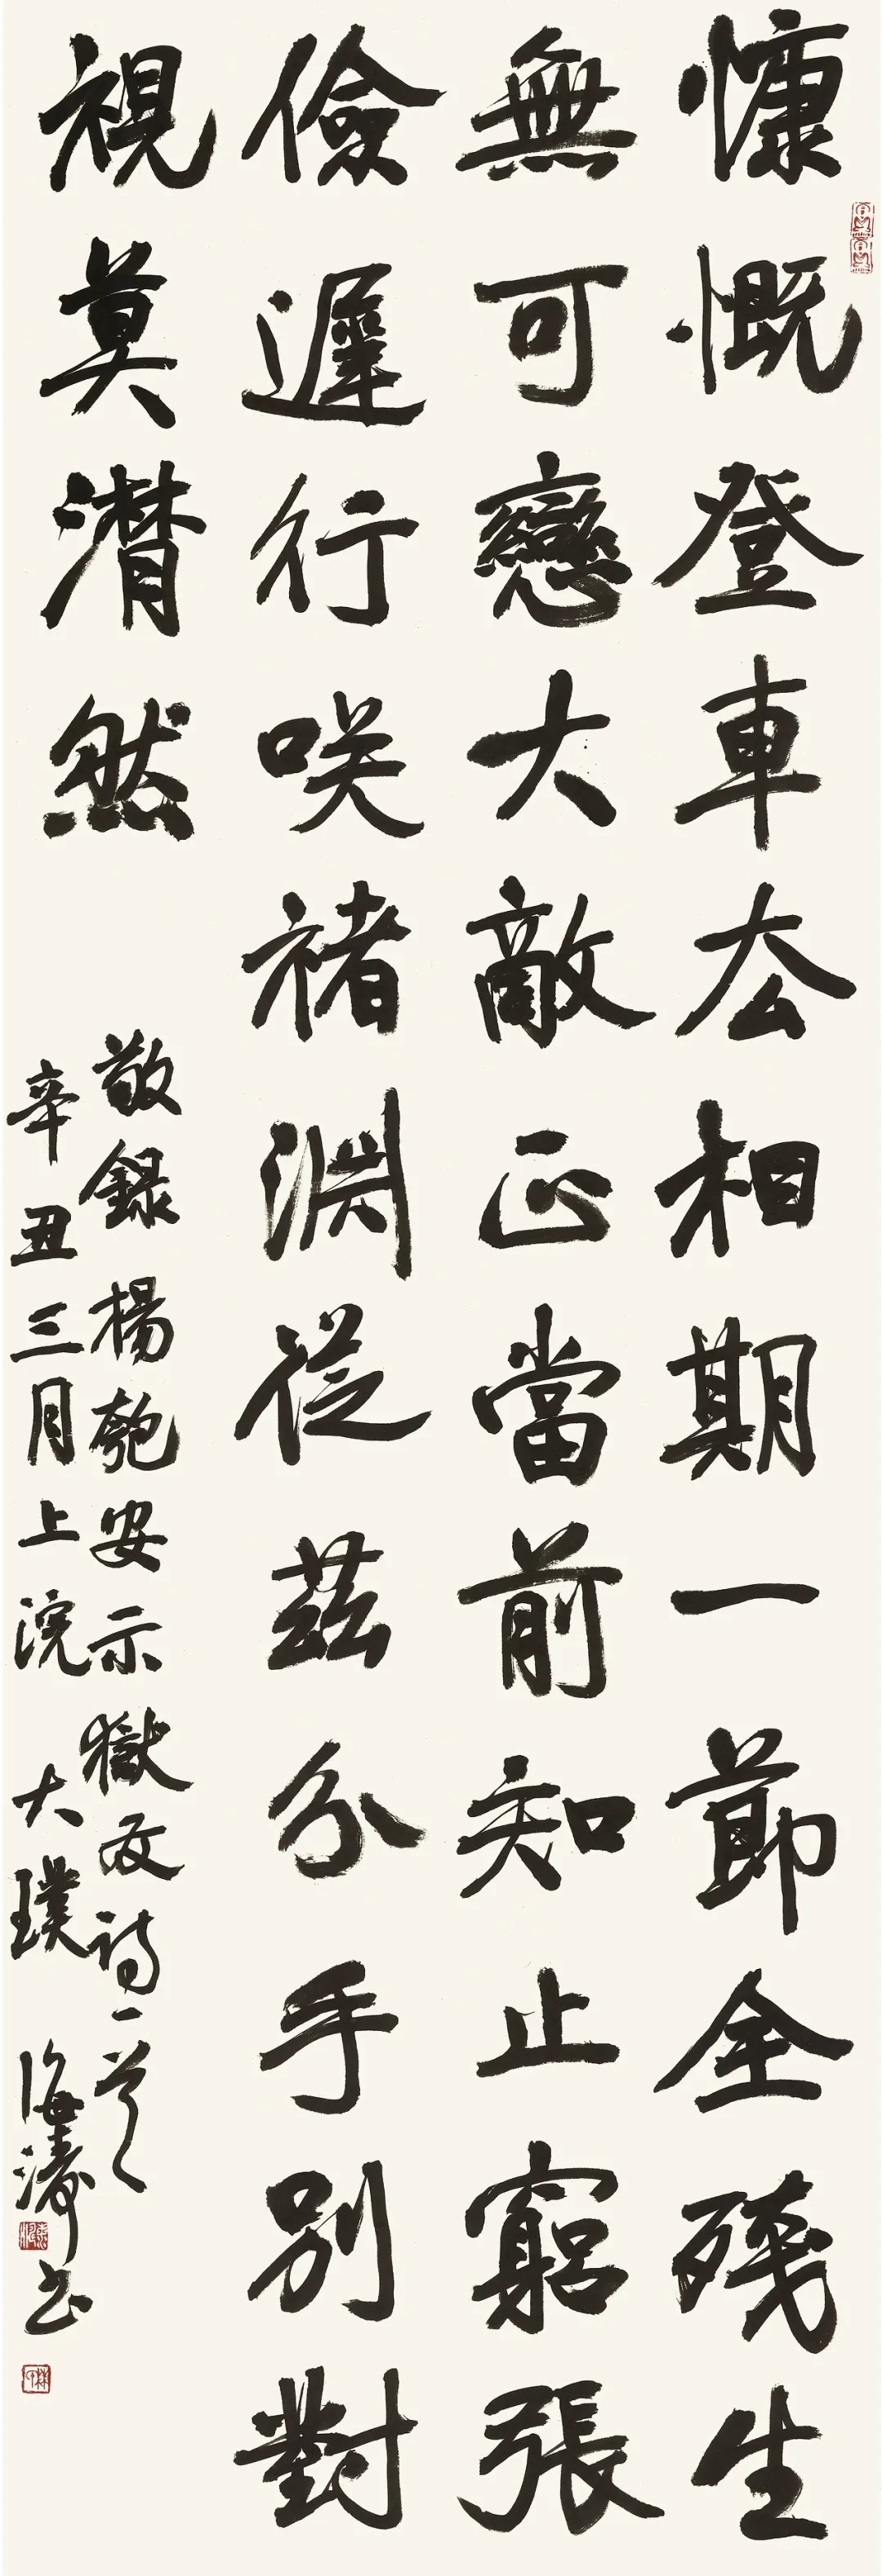 慷慨登車去相期一節全殘生
無可戀大敵正當前知止窮張
儉遲行咲褚淵從茲分手別對
視莫潸然
敬錄楊匏安示獄友詩一首
辛丑三月上浣大璞海濤書